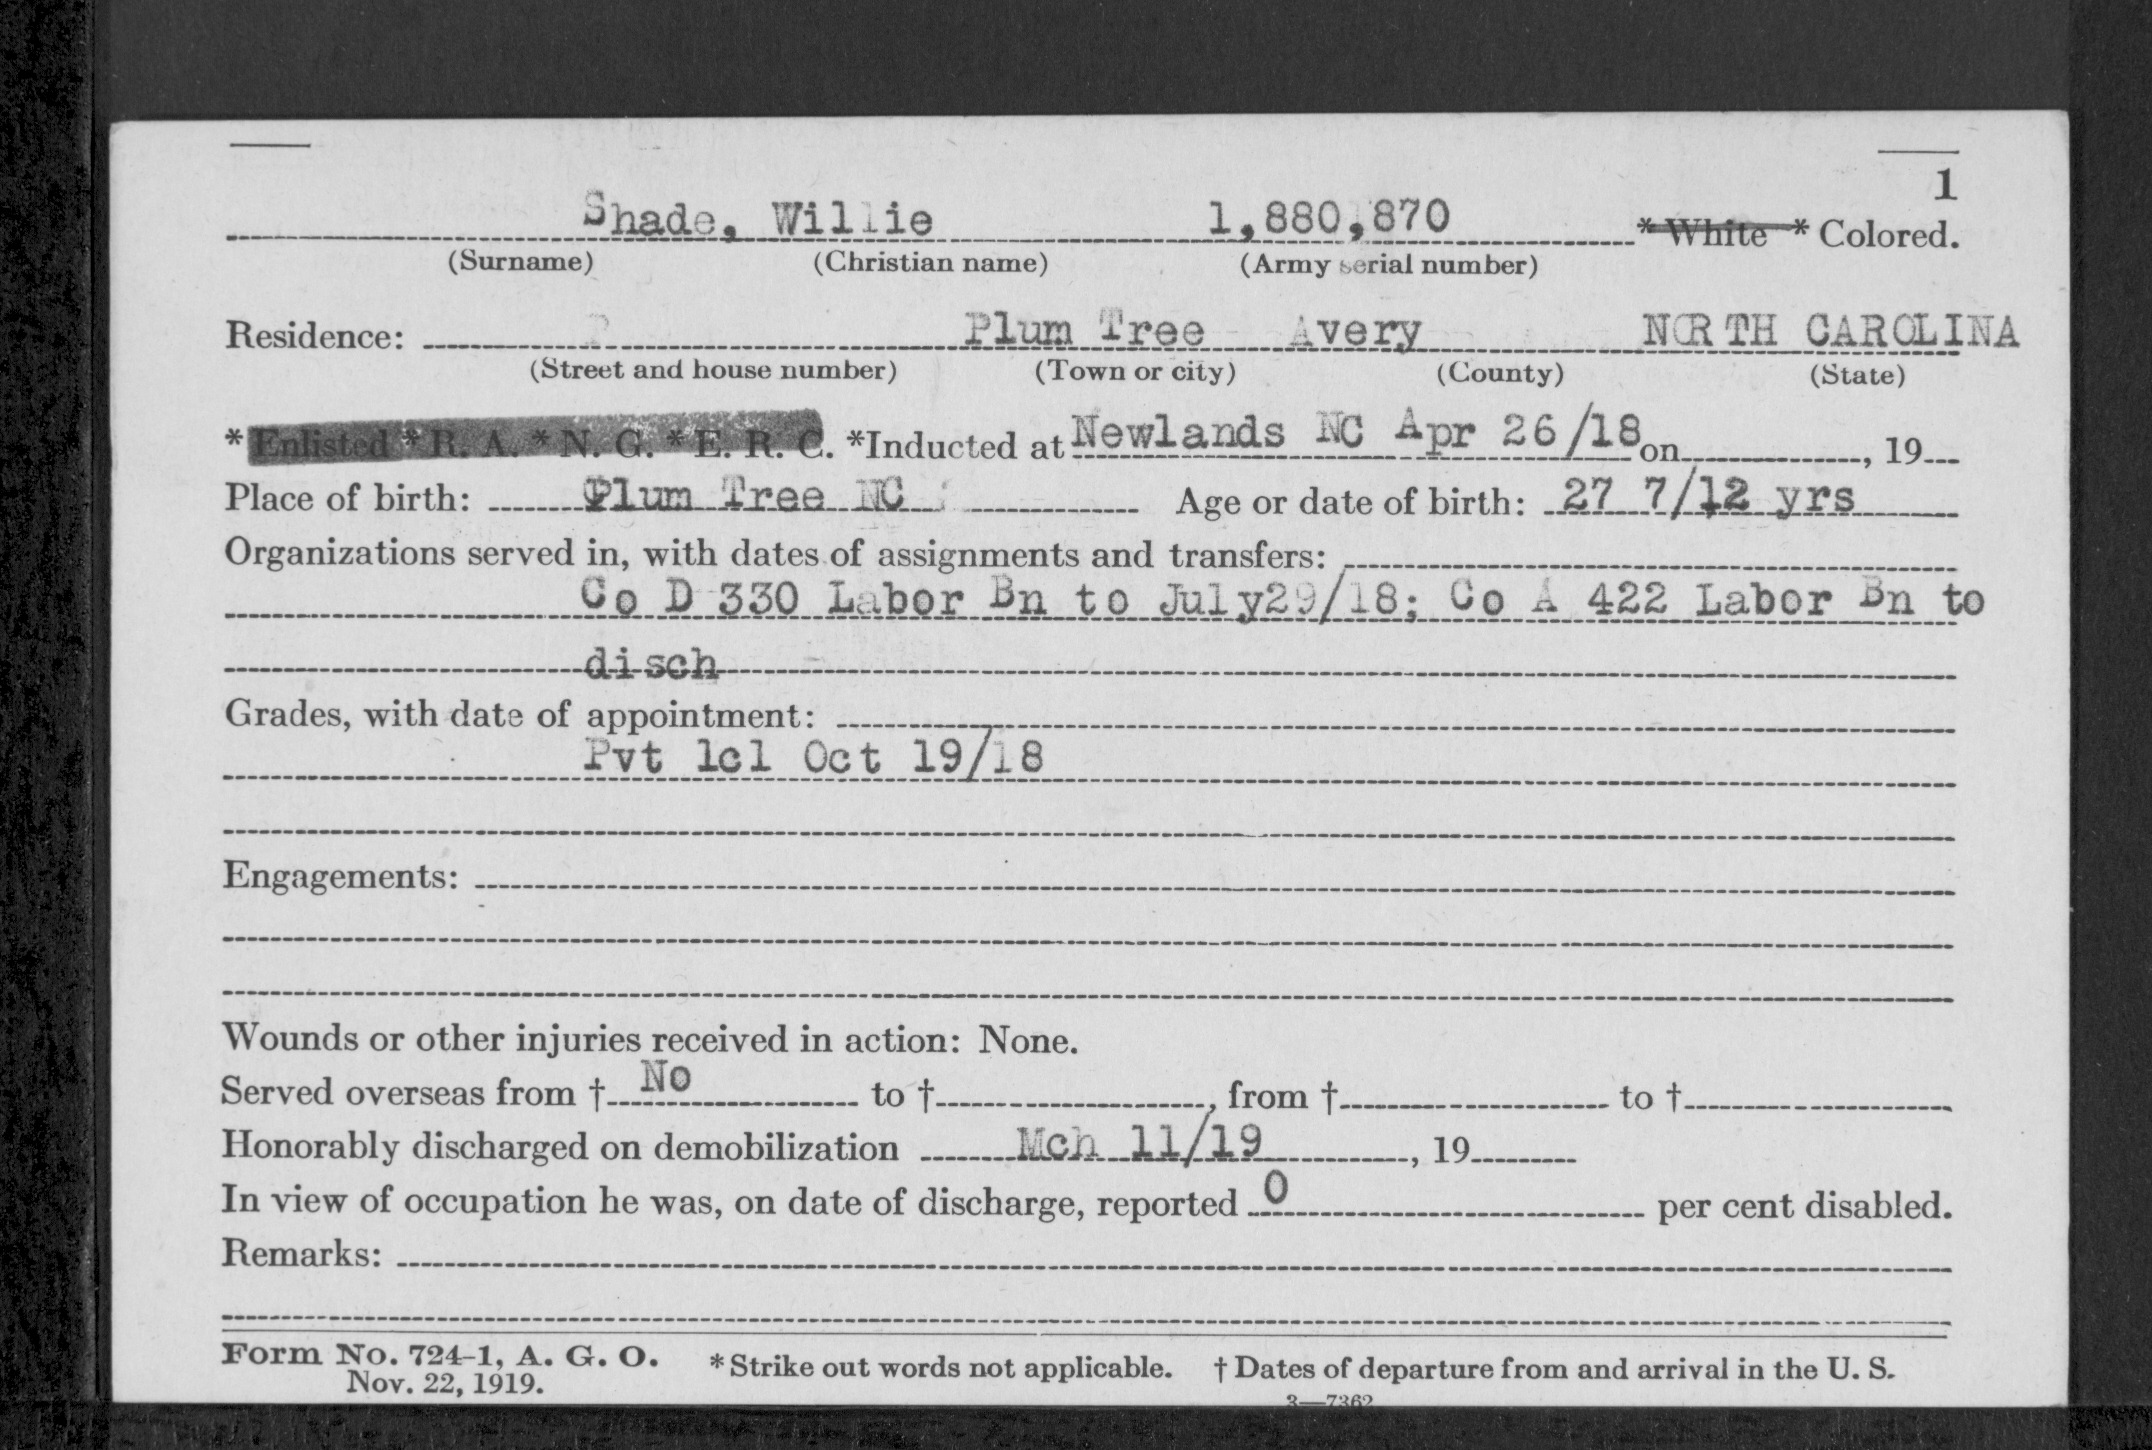 1
Shade, Willie 1,880,870 *White *Colored.
(Surname) (Christian name) (Army serial number)
Residence: Plum Tree Avery NORTH CAROLINA
(Street and house number) (Town or city) (County) (State)
*Enlisted *R. A. *N. G. *E. R. C. *Inducted at Newlands NC Apr 26/18 on , 19
Place of birth: Plum Tree NC Age or date of birth: 27 7/12 yrs
Organizations served in, with dates of assignments and transfers:
Co D 330 Labor Bn to July29/18; Co A 422 Labor Bn to
disch
Grades, with date of appointment:
Pvt 1cl Oct 19/18
Engagements:
Wounds or other injuries received in action: None.
Served overseas from † No to † , from † to †
Honorably discharged on demobilization Mch 11/19 , 19
In view of occupation he was, on date of discharge, reported 0 per cent disabled.
Remarks:
Form No. 724-1, A. G. O. *Strike out words not applicable. † Dates of departure from and arrival in the U. S.
Nov. 22, 1919.
3—7362